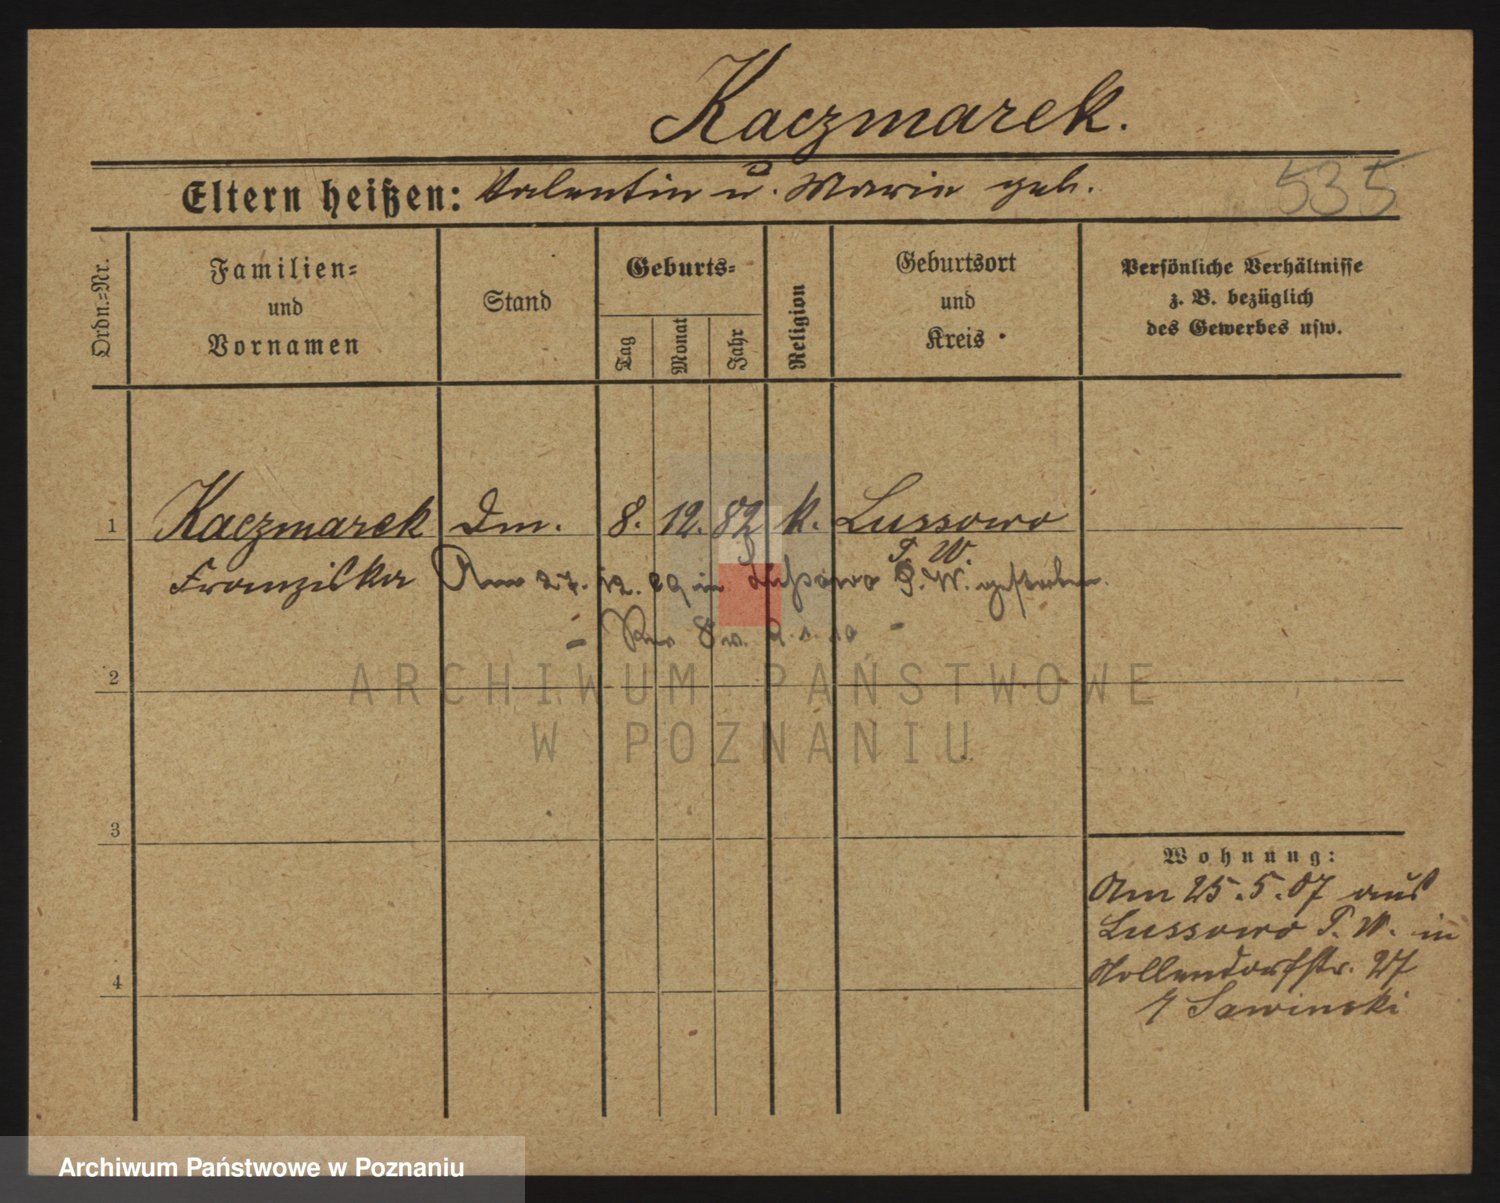 Kaczmarek.
Eltern heißen: Valentin u. Marie geb.
535
Ordn.=Nr.
Familien=
und
Vornamen
Stand
Geburts=
Tag
Monat
Jahr
Religion
Geburtsort
und
Kreis
Persönliche Verhältnisse
z. B. bezüglich
des Gewerbes usw.
1
Kaczmarek Dm. 8. 12. 82 k. Lussowo
P. W.
Franziska Am 27. 12. 09 in Lussowo P. W. gestorben.
2
ARCHIWUM PAŃSTWOWE
W POZNANIU
3
4
Wohnung:
Am 25.5.07 aus
Lussowo P. W. in
Nollendorfstr. 27
Sawinski
Archiwum Państwowe w Poznaniu